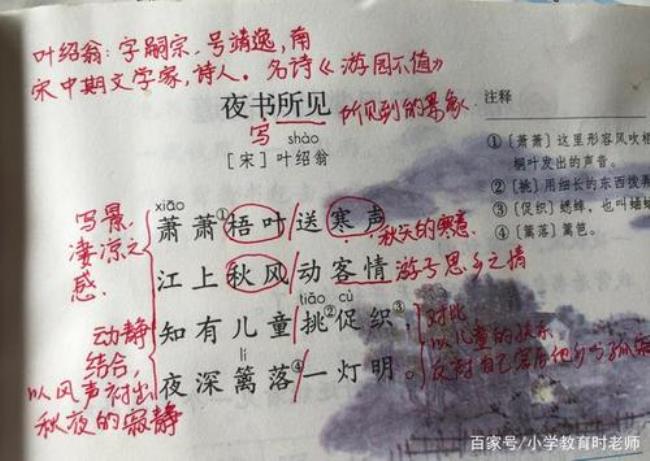 叶绍翁：字嗣宗，号靖逸，南
宋中期文学家，诗人。名诗《游园不值》
夜书所见
写
所见到的景象.
注释
shào
[宋]叶绍翁
①〔萧萧〕这里形容风吹梧
桐叶发出的声音。
②〔挑〕用细长的东西拨弄
③〔促织〕蟋蟀，也叫蛐蛐
④〔篱落〕篱笆。
xiāo
萧萧①梧叶/送寒声
秋天的寒意
江上秋风/动客情
游子思乡之情
tiǎo cù
知有儿童/挑②促织③，
lí
夜深篱落④/一灯明。
写景，
凄凉之
感.
动静
结合，
以风声衬出
秋夜的寂静
对比
以儿童的快乐
反衬自己客居他乡的孤寂
百家号/小学教育时老师